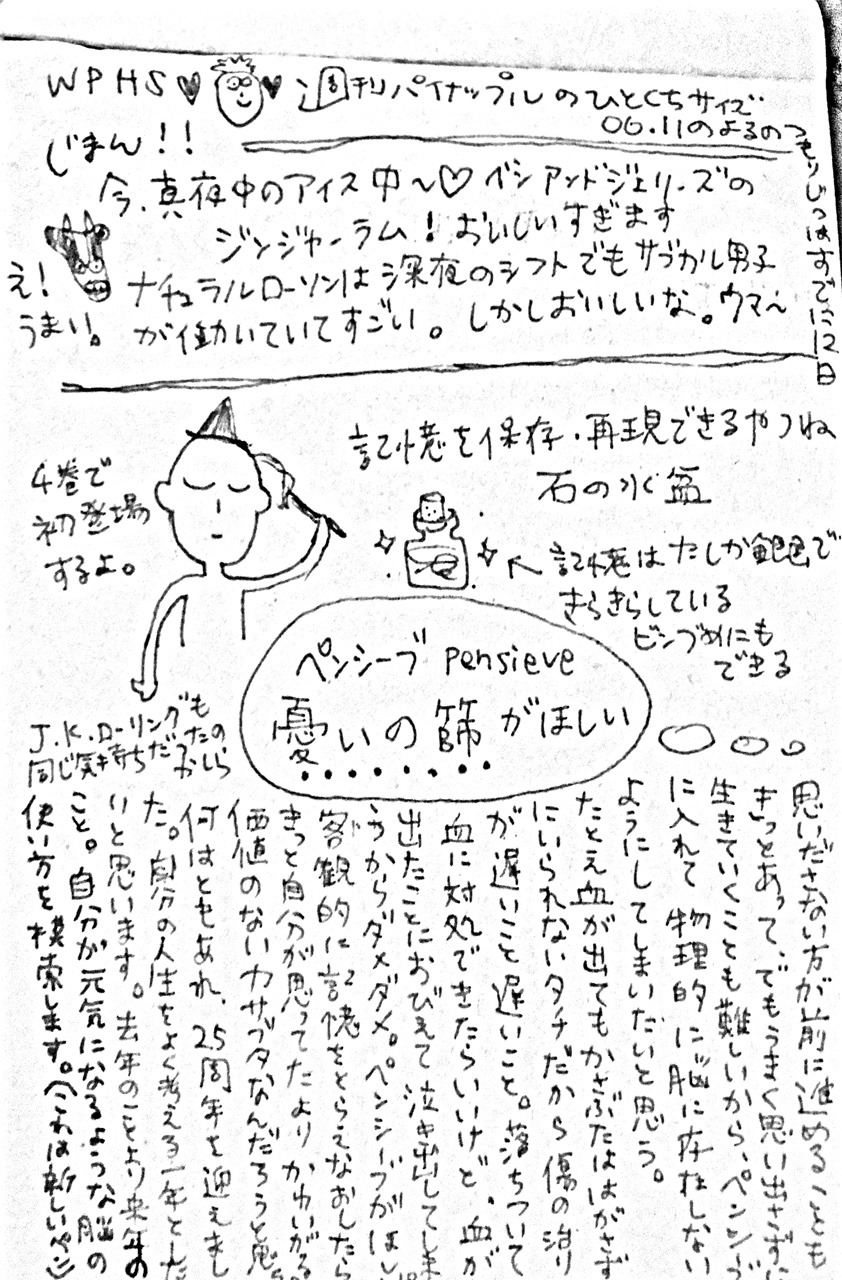 WPHS♥ ♥週刊パイナップルのひとくちサイズ
06.11のよるのつもり
じつはすでに12日
じまん!!
今、真夜中のアイス中〜♡ベンアンドジェリーズの
ジンジャーラム!おいしいすぎます
ナチュラルローソンは深夜のシフトでもサブカル男子
が働いていてすごい。しかしおいしいな。ウマ〜
え!
うまい。
記憶を保存・再現できるやつね
石の水盆
4巻で
初登場
するよ。
← 記憶はたしか銀色で
きらきらしている
ビンづめにも
できる
ペンシーブ pensieve
憂いの篩がほしい
J.K.ローリングも
同じ気持ちだったの
かしら
思いださない方が前に進めることも
きっとあって、でもうまく思い出さずに
生きていくことも難しいから、ペンシーブ
に入れて物理的に脳に存在しない
ようにしてしまいたいと思う。
たとえ血が出てもかさぶたははがさず
にいられないタチだから傷の治り
が遅いこと遅いこと。落ちついて
血に対処できたらいいけど、血が
出たことにおびえて泣き出してしま
うからダメダメ。ペンシーブがほし
客観的に記憶をとらえなおしたら
きっと自分が思ってたよりかわいがる
価値のないカサブタなんだろうと思
何はともあれ、25周年を迎えまし
た。自分の人生をよく考える一年とした
いと思います。去年のことより来年の
こと。自分が元気になるような脳の
使い方を模索します。(これは新しいペン